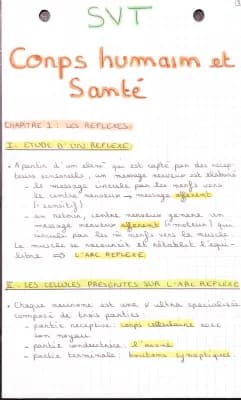 SVT
Corps humain et
Santé
CHAPITRE 1 : LES REFLEXES.
I - ETUDE D'UN REFLEXE
• A partir d'un élem^t qui est capté par des récep-
teurs sensoriels, un message nerveux est élaboré
- le message circule par les nerfs vers
le centre nerveux → message afférent
(= sensitif)
- en retour, centre nerveux génère un
message nerveux efférent (= moteur) qui
circule par les nerfs vers le muscle.
Le muscle se raccourcit et rétablit l'équi-
libre ⇒ L'ARC REFLEXE
II - LES CELLULES PRESENTES SUR L'ARC REFLEXE
• Chaque neurone est une ultra spécialisée
composé de trois parties :
- partie réceptrice : corps cellulaire avec
son noyau
- partie conductrice : l'axone
- partie terminale : boutons synaptiques.